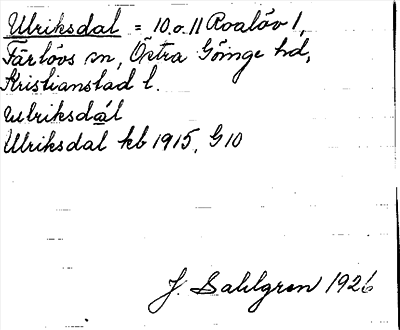 Ulriksdal = 10 o. 11 Roalöv 1,
Färlövs sn, Östra Göinge hd,
Kristianstad l.
ulriksdál
Ulriksdal kb 1915, G10
J. Sahlgren 1926